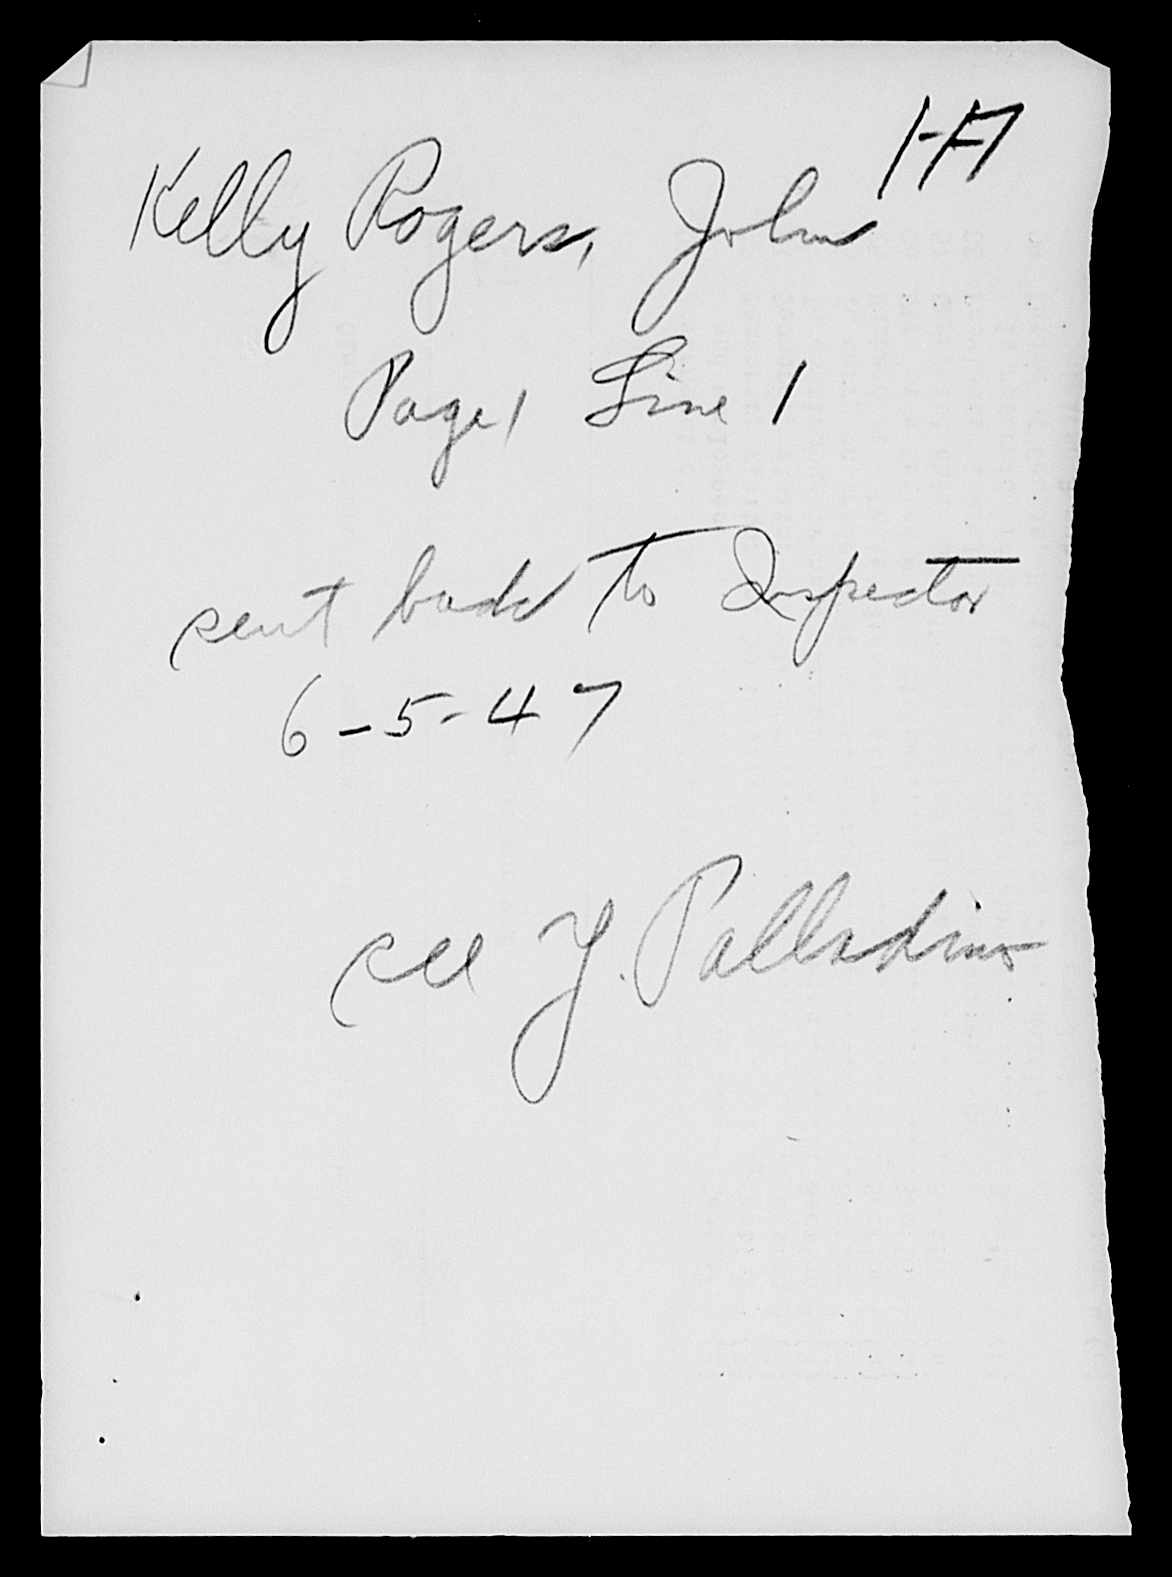 1-17
Kelly Rogers, John
Page 1 Line 1
sent back to Inspector
6-5-47
see Y. Palladino